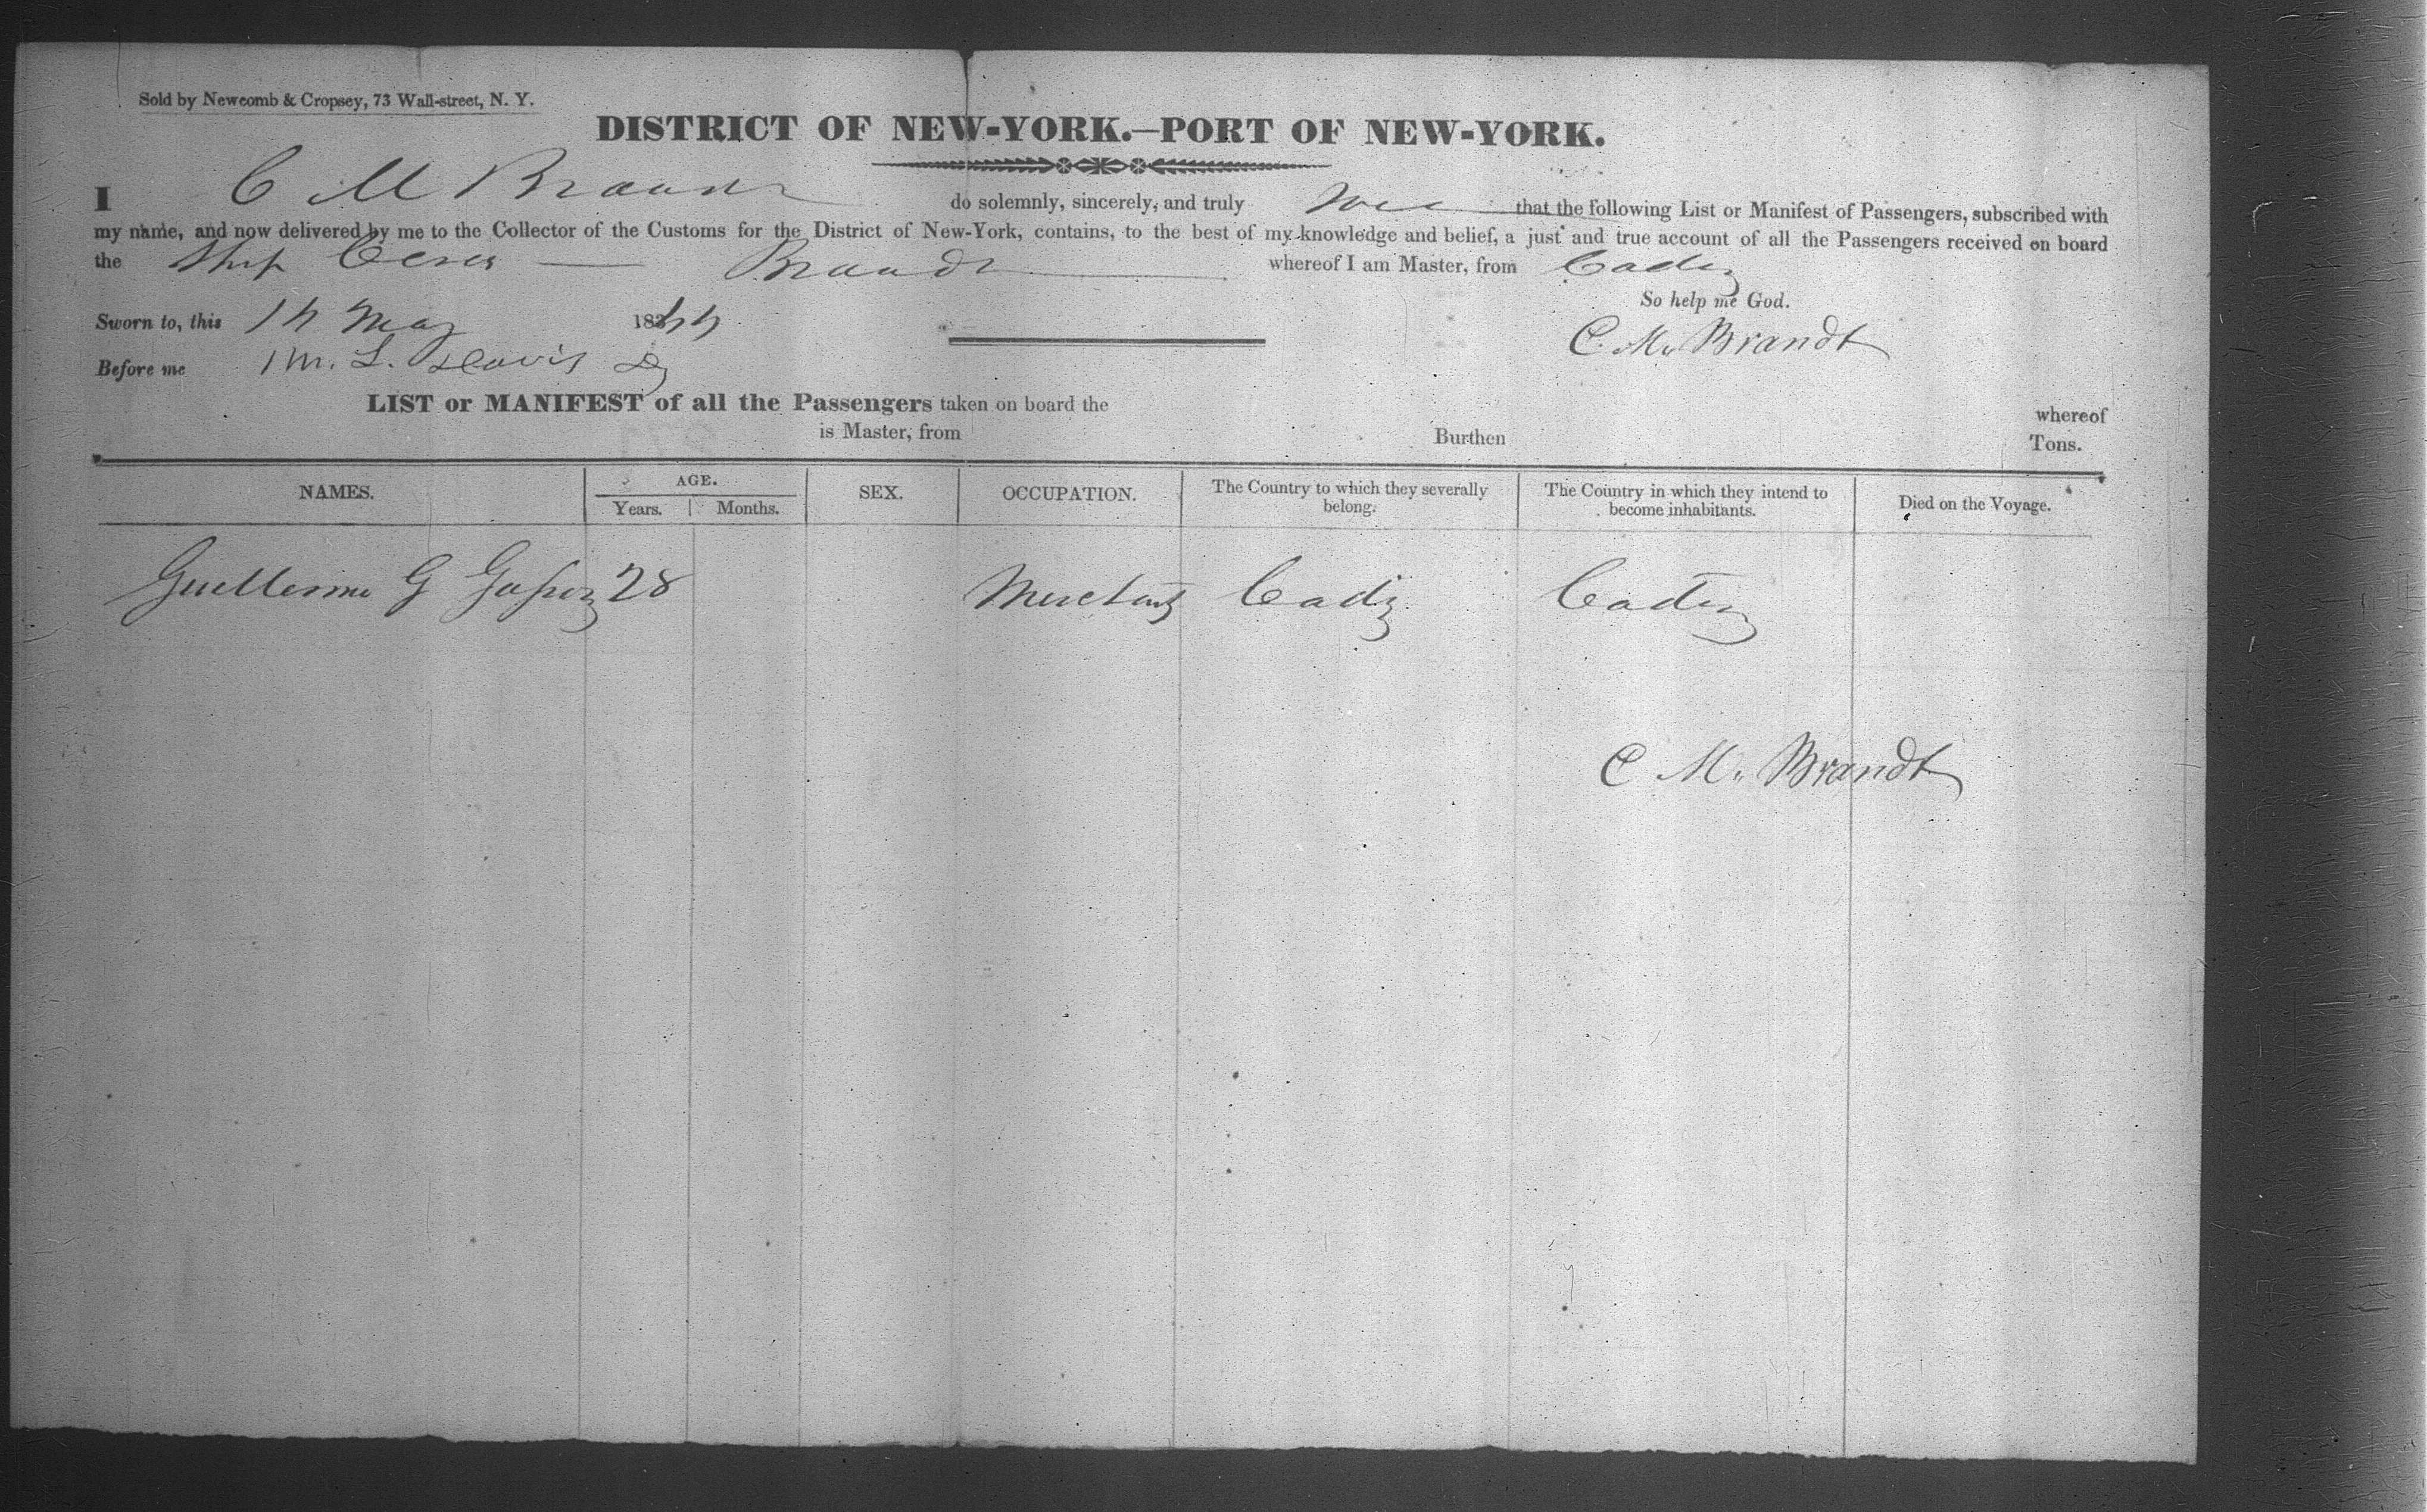 Sold by Newcomb & Cropsey, 73 Wall-street, N. Y.
DISTRICT OF NEW-YORK.—PORT OF NEW-YORK.
I C M Brandt do solemnly, sincerely, and truly that the following List or Manifest of Passengers, subscribed with
my name, and now delivered by me to the Collector of the Customs for the District of New-York, contains, to the best of my knowledge and belief, a just and true account of all the Passengers received on board
the Ship Ceres Brandt whereof I am Master, from Cadiz
So help me God.
Sworn to, this 14 May 1844
C. M. Brandt
Before me M. L. Davis
LIST or MANIFEST of all the Passengers taken on board the whereof
is Master, from Burthen Tons.
NAMES. AGE. Years. Months. SEX. OCCUPATION. The Country to which they severally belong. The Country in which they intend to become inhabitants. Died on the Voyage.
Guellermo G 28 Merchant Cadiz Cadiz
C M. Brandt